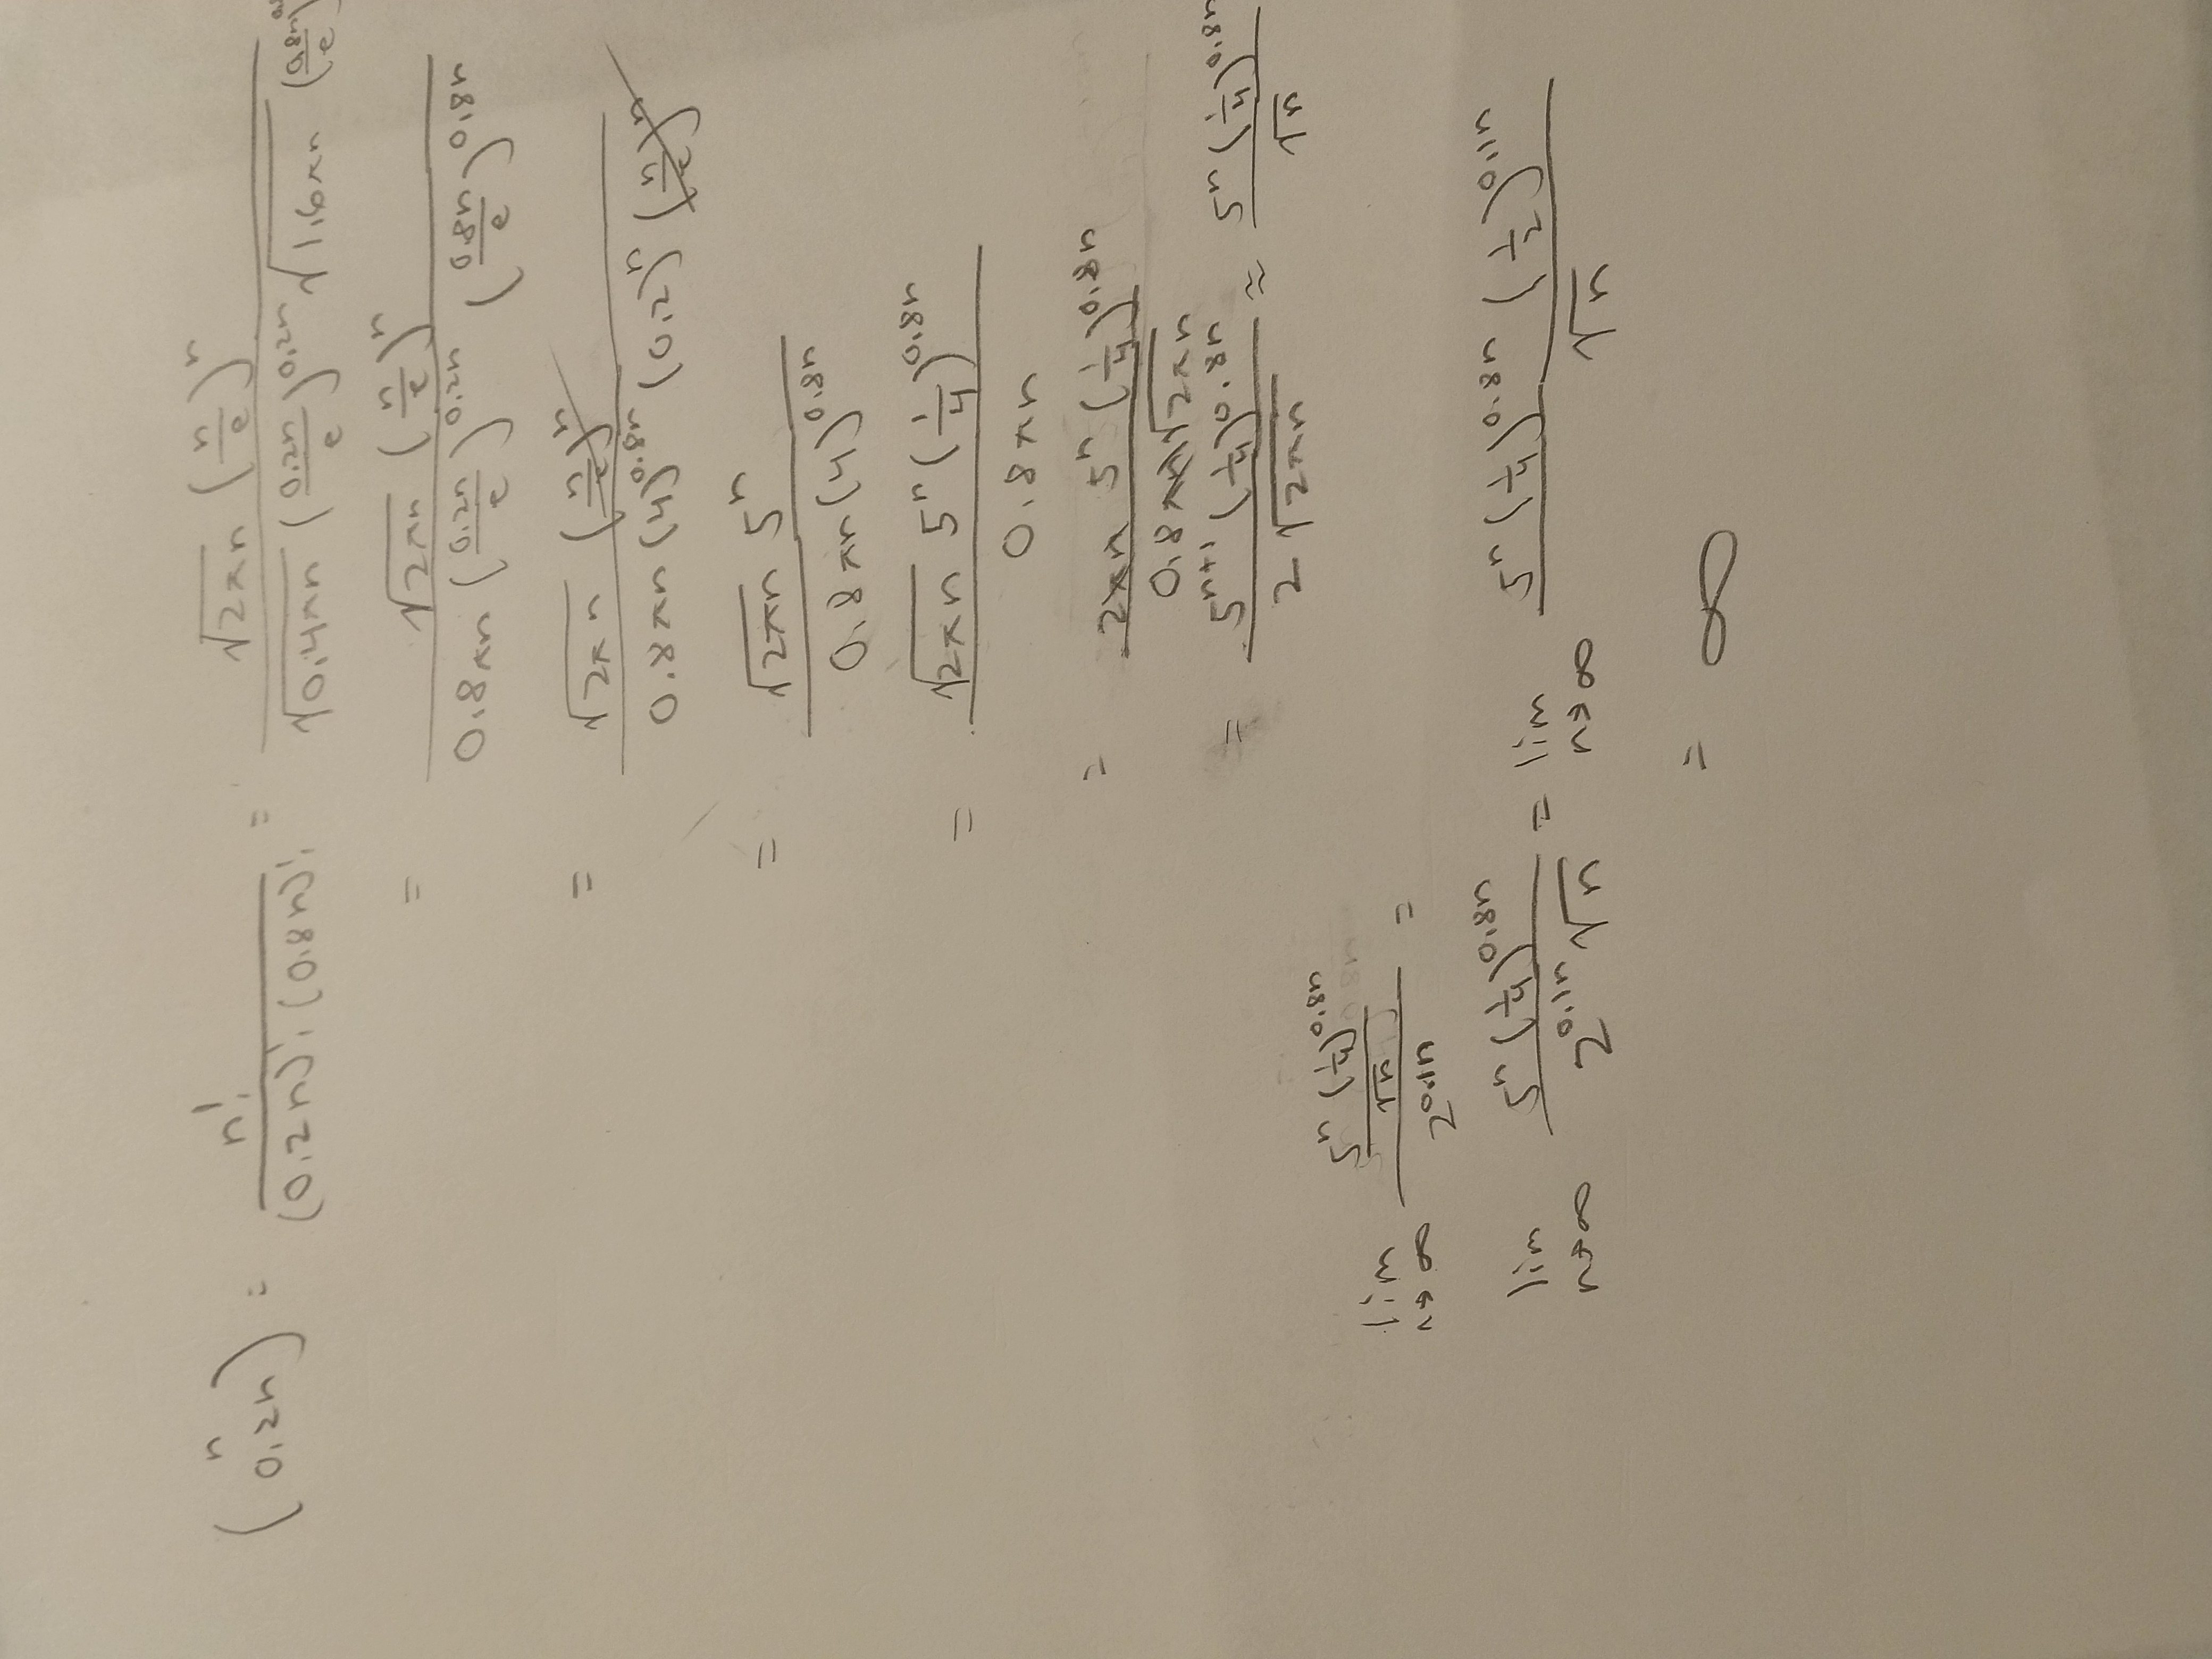 (n 0.2n) = n! / (0.2n)! (0.8n)! = √2πn (n/e)^n / √0.4πn (0.2n/e)^0.2n √1.6πn (0.8n/e)
= √2πn (n/e)^n / 0.8πn (0.2n/e)^0.2n (0.8n/e)^0.8n
= √2πn (n/e)^n / 0.8πn (4)^0.8n (0.2)^n (n/e)^n
= √2πn 5^n / 0.8πn (4)^0.8n
= √2πn 5^n (1/4)^0.8n / 0.8πn
= 2πn 5^n (1/4)^0.8n / 0.8πn √2πn
= 5^n+1 (1/4)^0.8n / 2 √2πn ≈ 5^n (1/4)^0.8n / √n
lim n→∞ 5^n (1/4)^0.8n / √n / 2^0.1n =
lim n→∞ 5^n (1/4)^0.8n / 2^0.1n √n = lim n→∞ 5^n (1/4)^0.8n (1/2)^0.1n / √n
= ∞